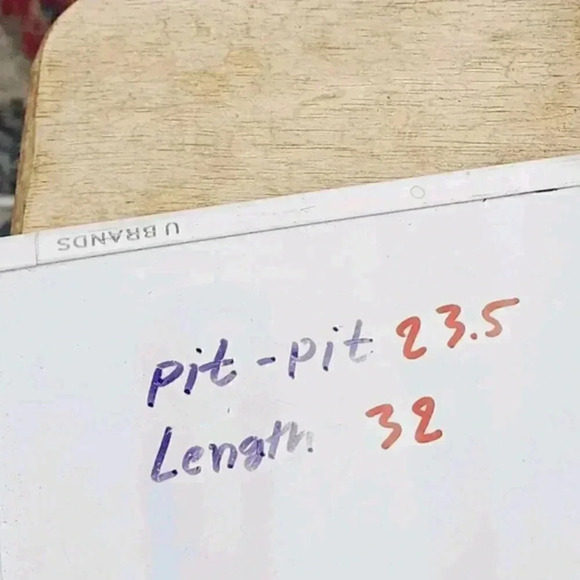 U BRANDS
pit - pit 23.5
Length 32